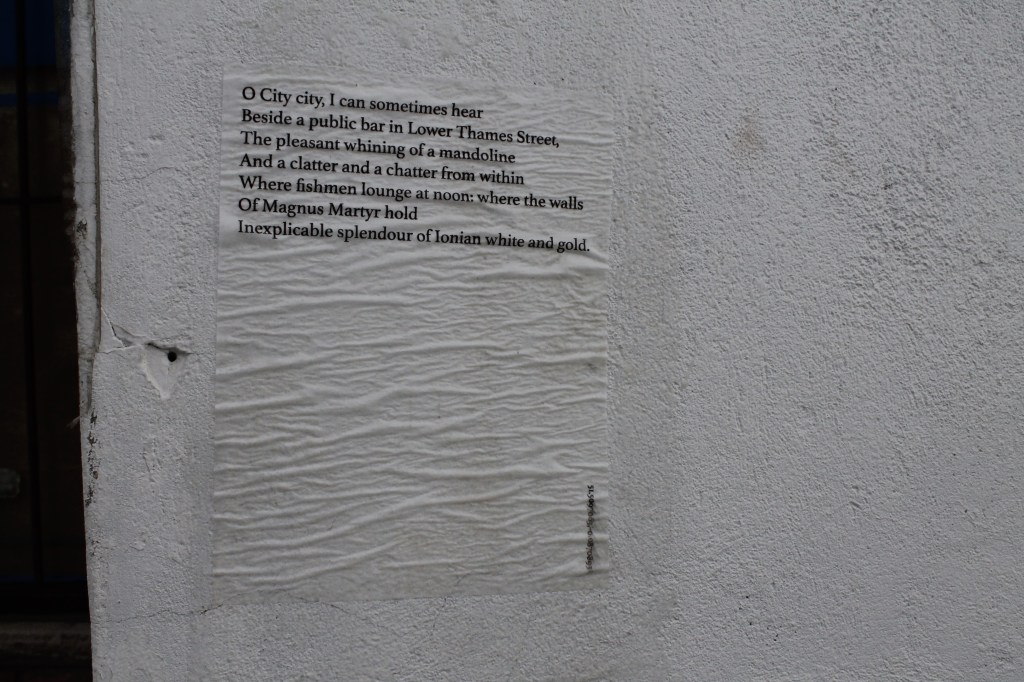 O City city, I can sometimes hear
Beside a public bar in Lower Thames Street,
The pleasant whining of a mandoline
And a clatter and a chatter from within
Where fishmen lounge at noon: where the walls
Of Magnus Martyr hold
Inexplicable splendour of Ionian white and gold.